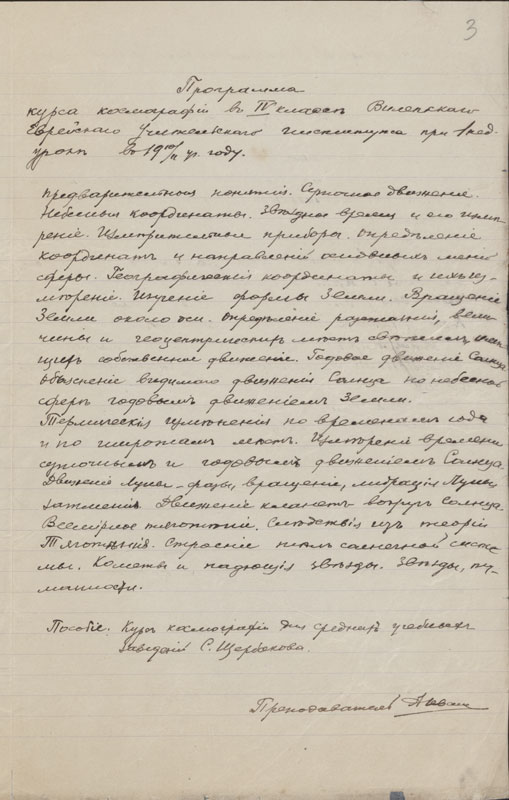 3
Программа
курса космографіи въ IV классѣ Виленскаго
Еврейскаго Учительскаго Института при 1 нед.
урокѣ въ 1910/11 уч. году.
Предварительныя понятія. Суточное движеніе.
Небесныя координаты. Звѣздное время и его измѣ-
реніе. Измѣрительные приборы. Опредѣленіе
координатъ и направленій основныхъ линій
сферы. Географическія координаты и ихъ из-
мѣреніе. Изученіе формы Земли. Вращеніе
Земли около оси. Опредѣленіе разстояній, вели-
чины и мѣстъ свѣтилъ, имѣю-
щихъ собственное движеніе. Годовое движеніе Солнца
объясненіе видимаго движенія Солнца по небесной
сферѣ годовымъ движеніемъ Земли.
Термическія измѣненія по временамъ года
и по широтамъ мѣстъ. Измѣреніе времени
суточнымъ и годовымъ движеніемъ Солнца.
Движеніе Луны – фазы, вращеніе, либрація Луны,
затменія. Движеніе планетъ вокругъ Солнца.
Всемірное тяготѣніе. Слѣдствія изъ теоріи
тяготѣнія. Строеніе тѣлъ солнечной систе-
мы. Кометы и падающія звѣзды. Звѣзды, ту-
манности.
Пособіе: Курсъ космографіи для среднихъ учебныхъ
заведеній С. Щербакова.
Преподаватель